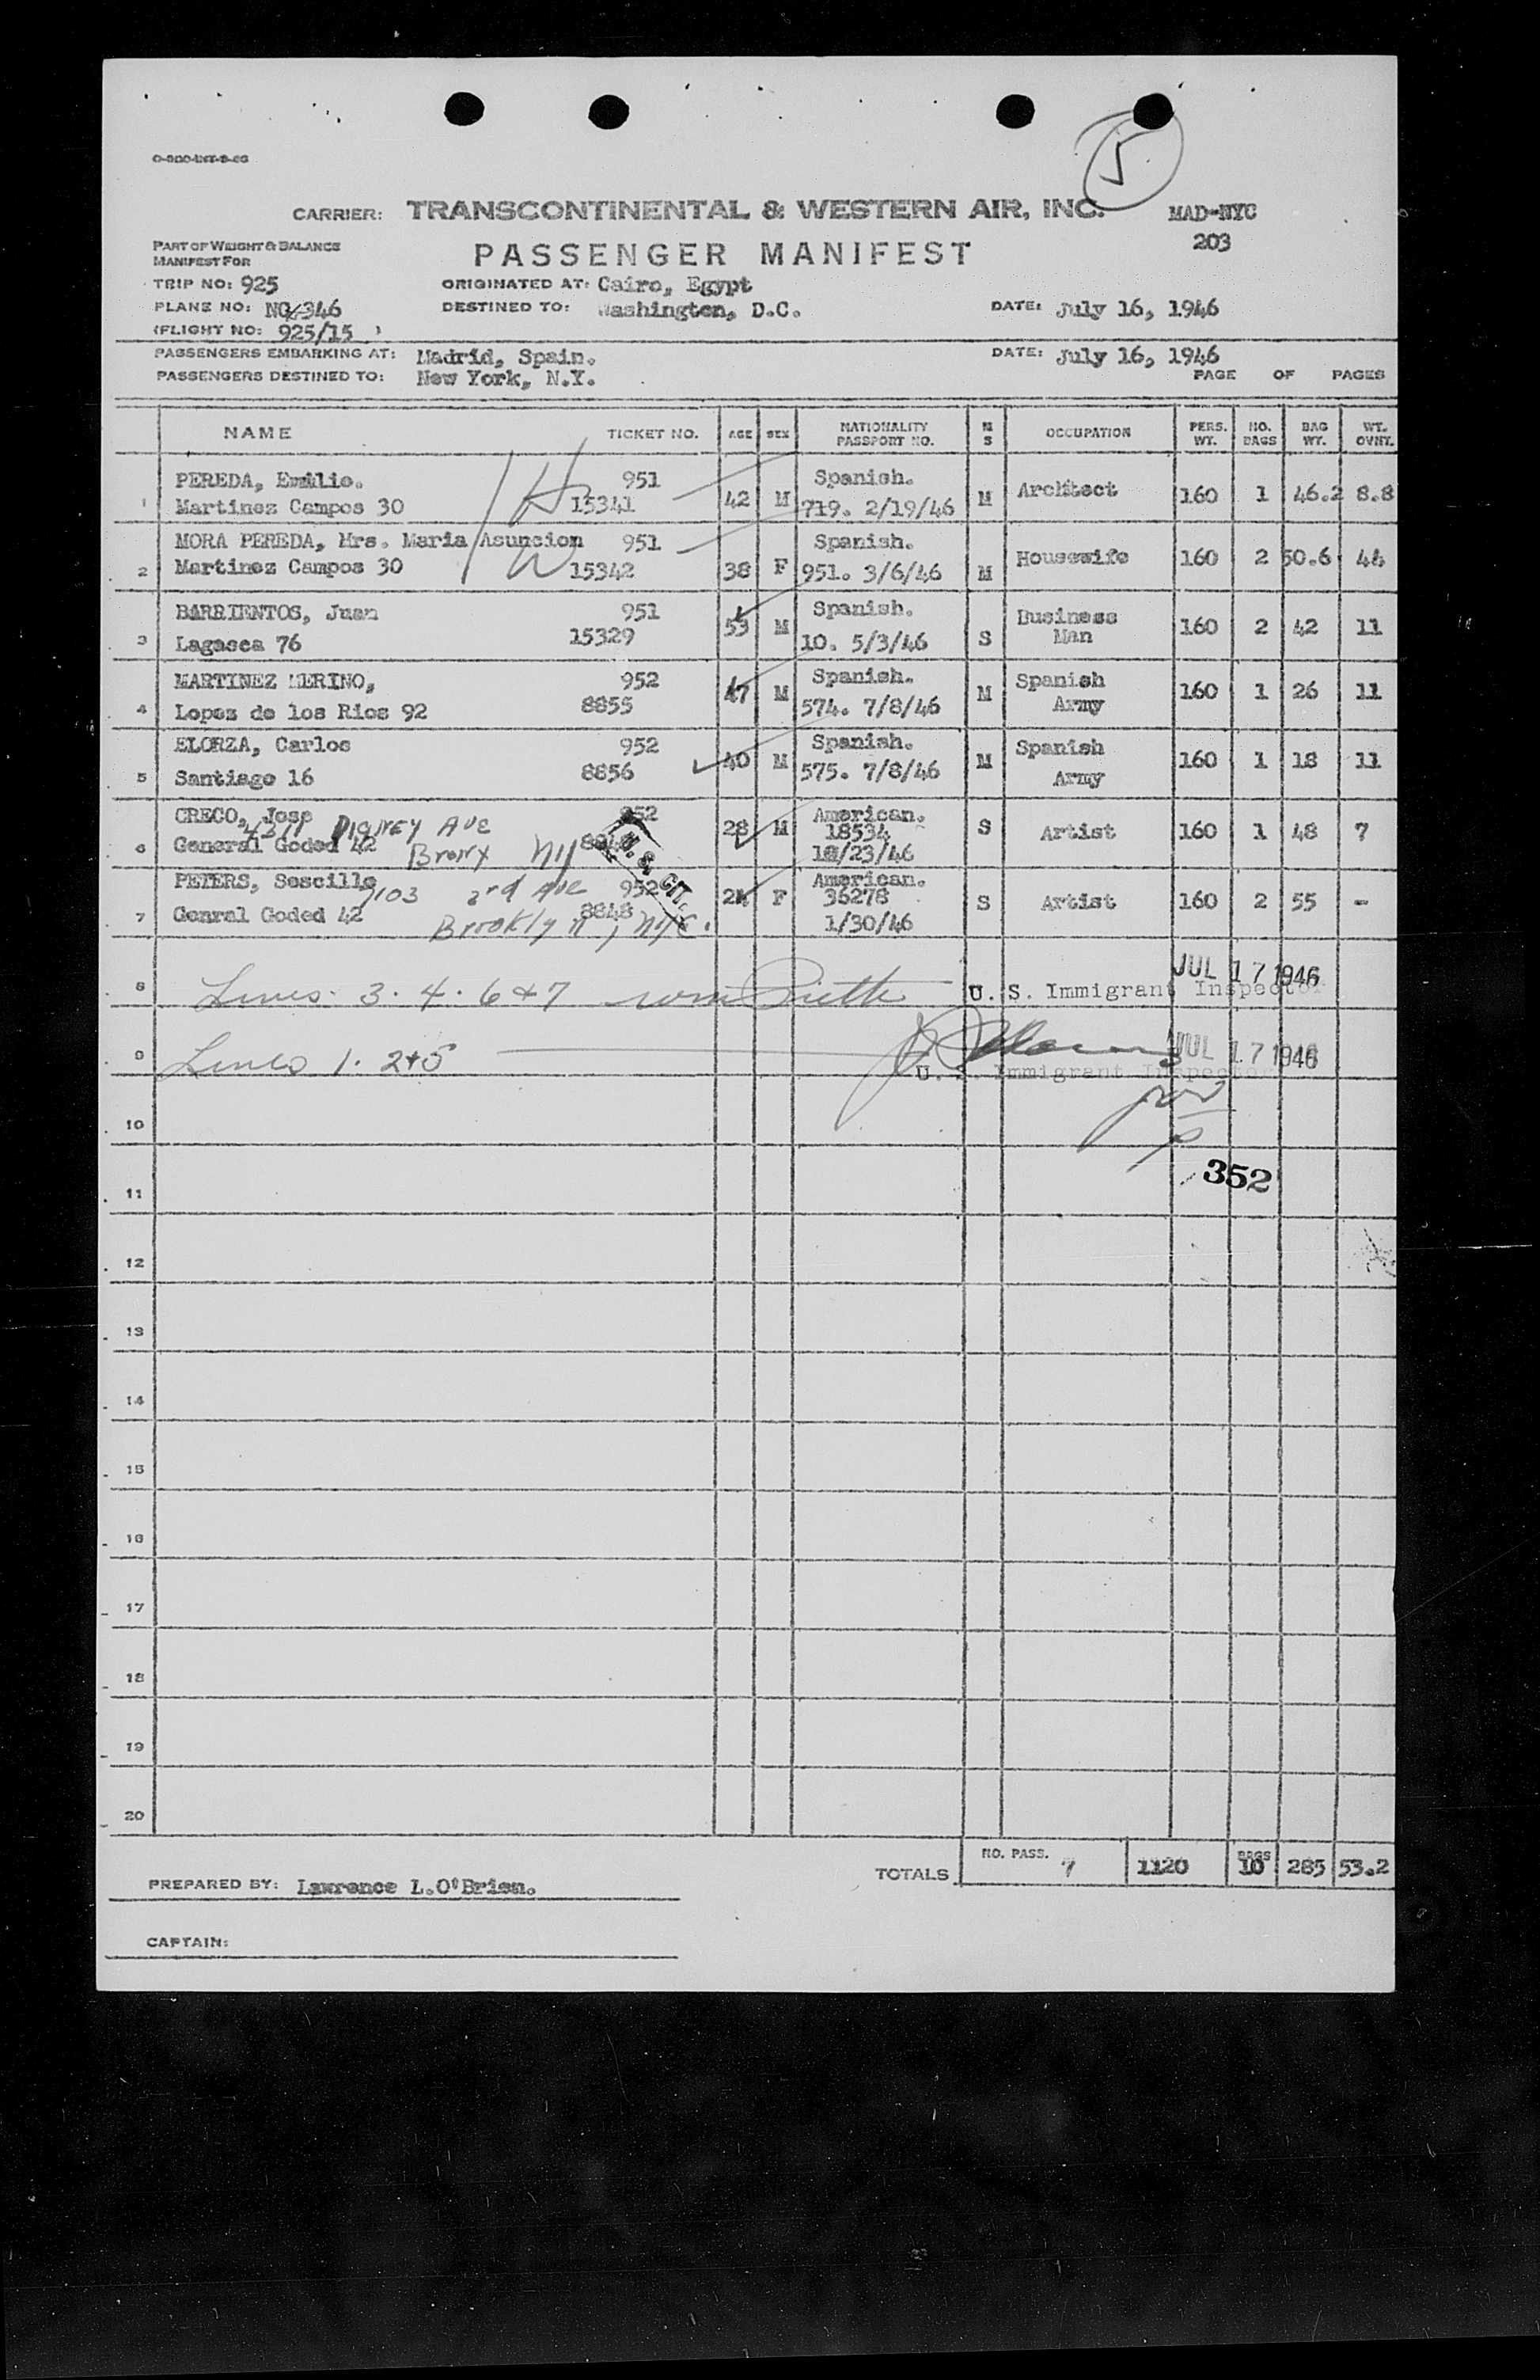 5
CARRIER: TRANSCONTINENTAL & WESTERN AIR, INC. MAD-NYC
PART OF WEIGHT & BALANCE PASSENGER MANIFEST 203
MANIFEST FOR
TRIP NO: 925 ORIGINATED AT: Cairo, Egypt
PLANE NO: NC-346 DESTINED TO: Washington, D.C. DATE: July 16, 1946
(FLIGHT NO: 925/15 )
PASSENGERS EMBARKING AT: Madrid, Spain. DATE: July 16, 1946
PASSENGERS DESTINED TO: New York, N.Y. PAGE OF PAGES
NAME TICKET NO. AGE SEX NATIONALITY PASSPORT NO. M S OCCUPATION PERS. WT. NO. BAGS BAG WT. WT. OVWT.
PEREDA, Emilio. 951 Spanish.
1 Martinez Campos 30 15341 42 M 719. 2/19/46 M Architect 160 1 46.2 8.8
MORA PEREDA, Mrs. Maria Asuncion 951 Spanish.
2 Martinez Campos 30 15342 38 F 951. 3/6/46 M Housewife 160 2 50.6 44
BARRIENTOS, Juan 951 Spanish. Business
3 Lagasca 76 15329 53 M 10. 5/3/46 S Man 160 2 42 11
MARTINEZ MERINO, 952 Spanish. Spanish
4 Lopez de los Rios 92 8855 47 M 574. 7/8/46 M Army 160 1 26 11
ELORZA, Carlos 952 Spanish. Spanish
5 Santiago 16 8856 40 M 575. 7/8/46 M Army 160 1 18 11
GRECO, Jose 952 American.
4311 Digney Ave 28 M 18534 S Artist 160 1 48 7
6 General Goded 42 Bronx NY /23/46
U. S. CIT.
PETERS, Sescille 952 American.
7103 3rd Ave 24 F 36278 S Artist 160 2 55 -
7 Genral Goded 42 8848 1/30/46
Brooklyn, NYC.
JUL 17 1946
8 Lines 3. 4. 6 & 7 U. S. Immigrant Inspector
9 Lines 1. 2 + 5 JUL 17 1946
U. S. Immigrant Inspector
10
352
11
12
13
14
15
16
17
18
19
20
TOTALS NO. PASS. 7 1120 BAGS 10 285 53.2
PREPARED BY: Lawrence L.O'Brien.
CAPTAIN: